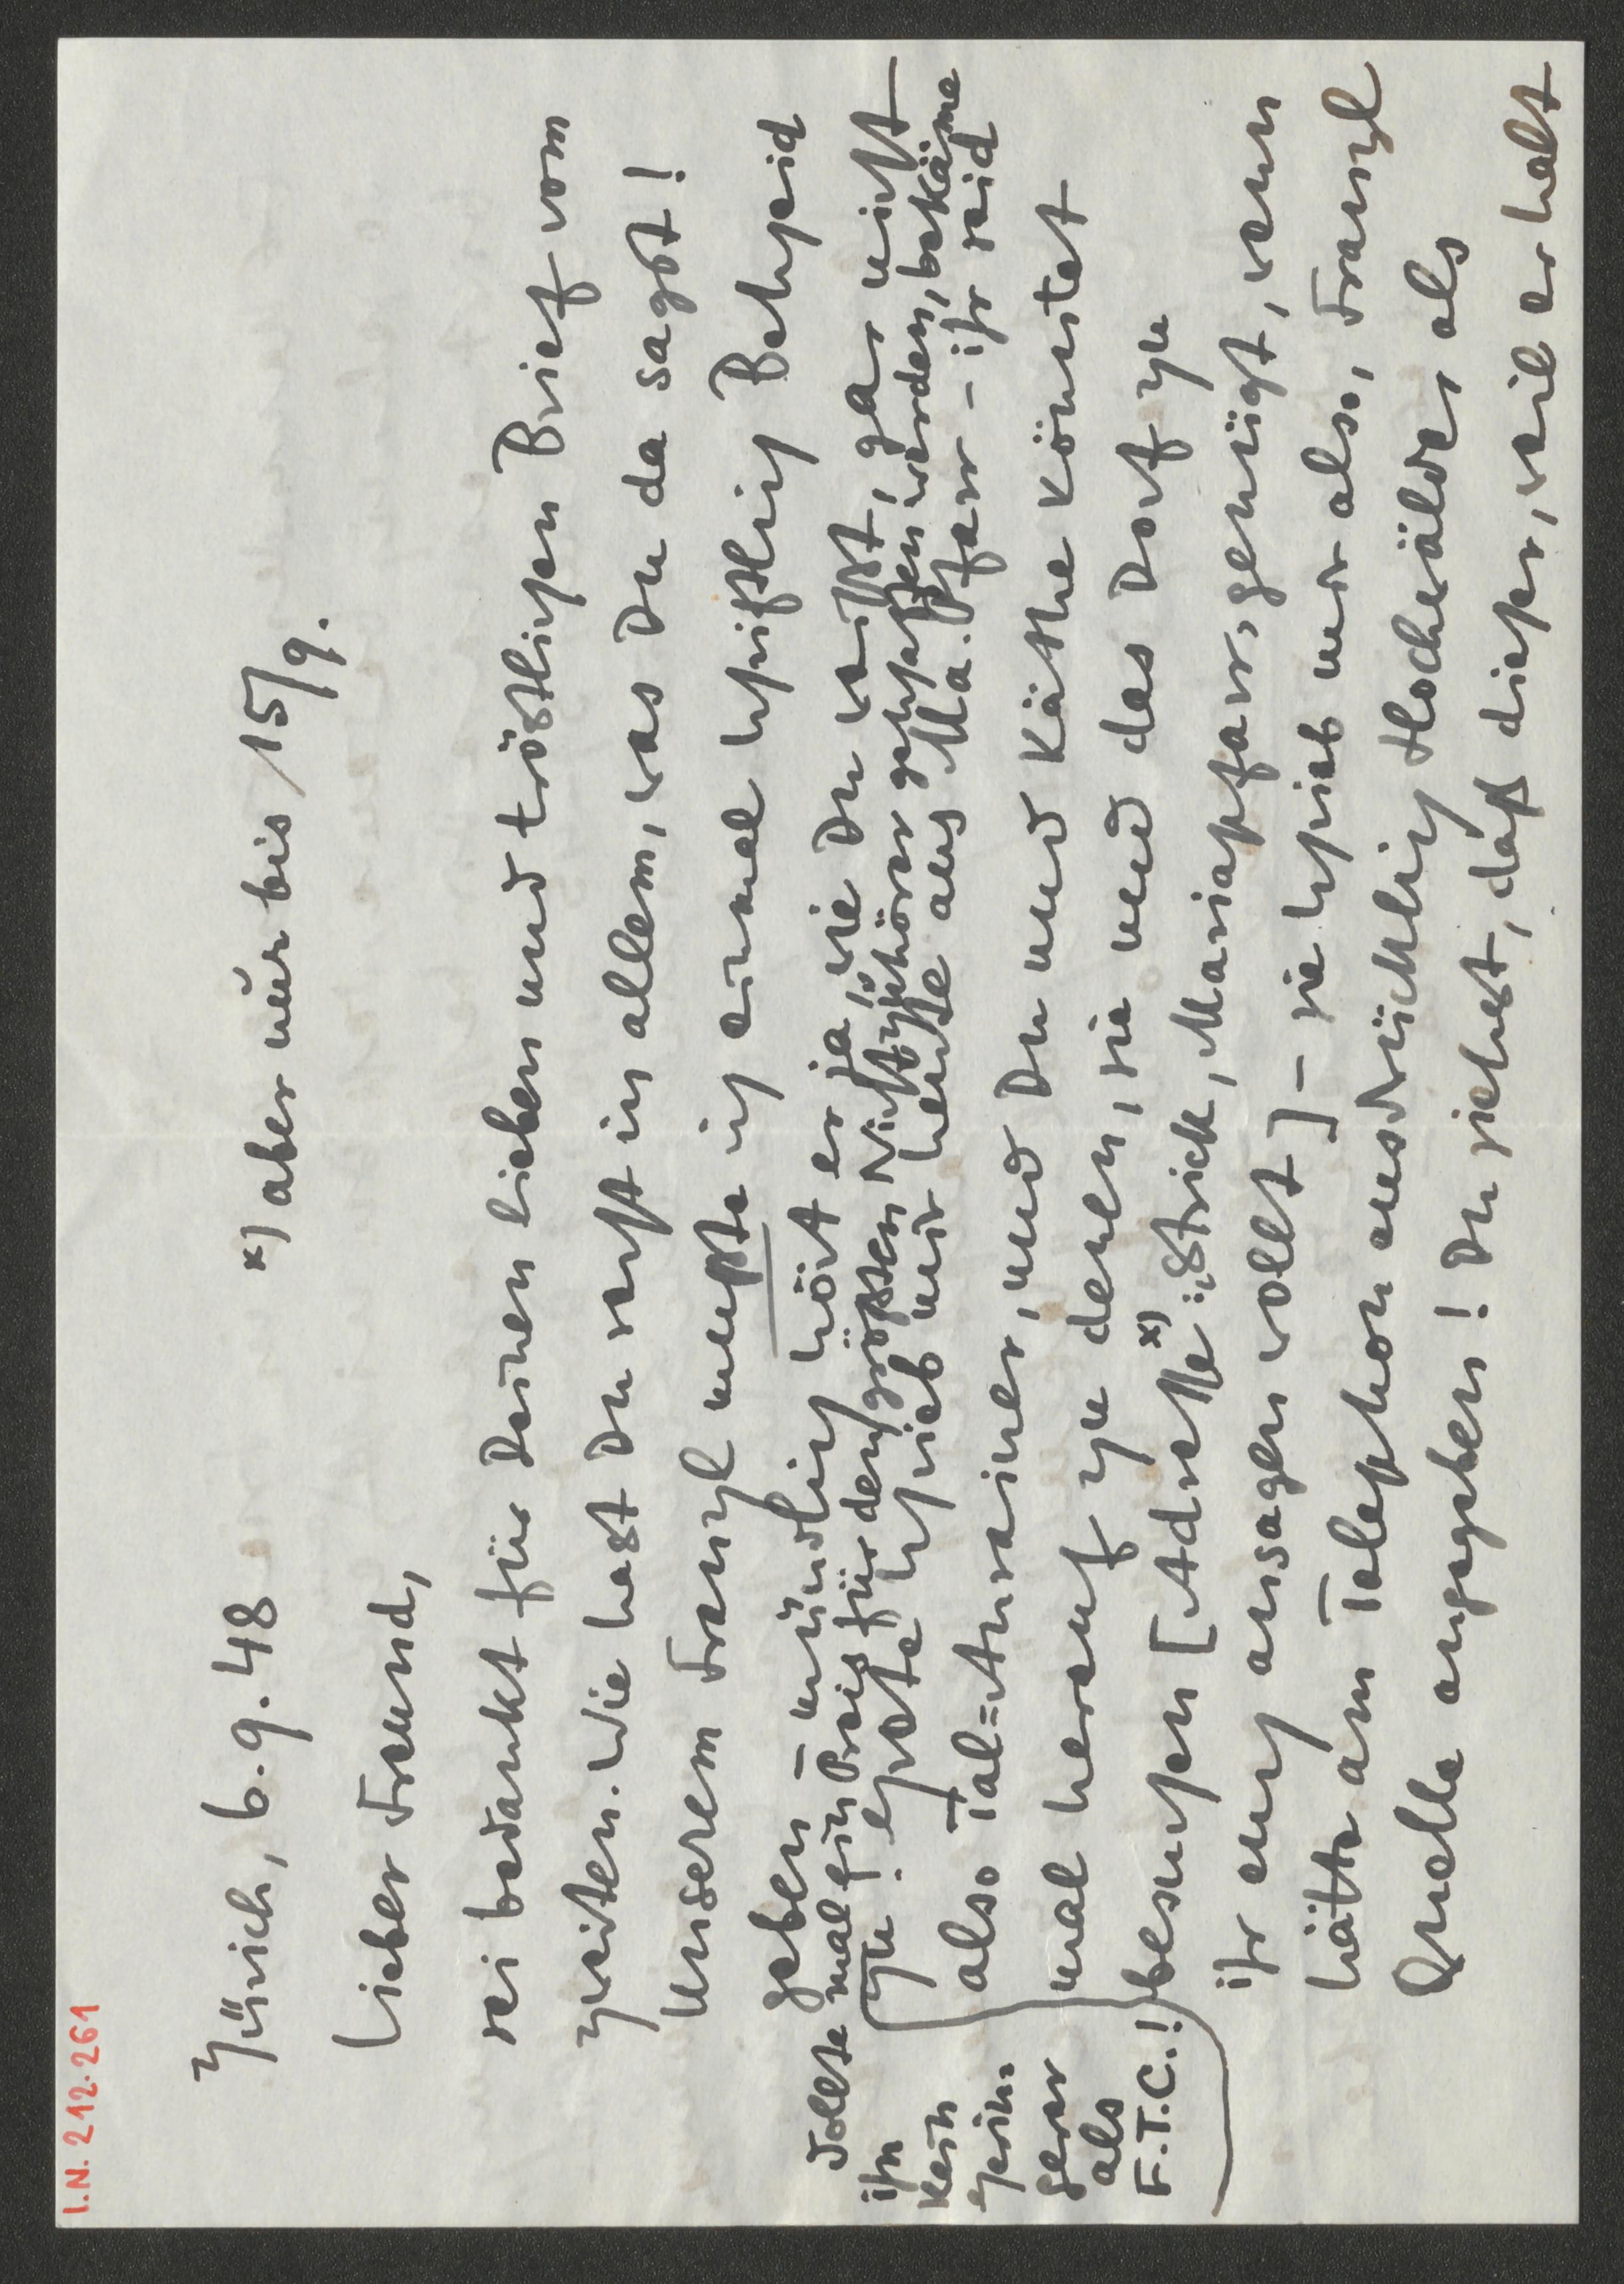 I.N. 212.261
Zürich, 6.9.48
x) aber nur bis 15/9.
Lieber Freund,
sei bedankt für Deinen lieben und tröstlichen Brief vom
zweiten. Wie hast Du recht in allem, was Du da sagst!
Unserem Franzl musste ich einmal schriftlich Bescheid
geben – mündlich hört er ja, wie Du weisst, gar nicht
zu! Sollte mal ein Preis für den grössten Nichtzuhörer geschaffen werden, bekäme
ihn kein geringerer als F.T.C.!
schrieb mir heute aus Ma. Pfarr – ihr seid
also Tal=Anrainer, und Du und Käthe könntet
mal herauf zu denen, sie und das Dorf zu
besuchen [Adresse x): Strick, Mariapfarr, genügt, wenn
ihr euch ansagen wollt] – sie schrieb mir also, Franzl
hätte am Telephon ausdrücklich Hochwälder als
Quelle angegeben! Du siehst, dass dieser, weil er halt